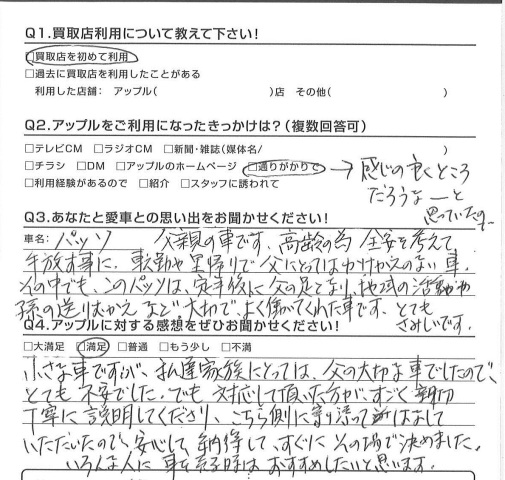 Q1.買取店利用について教えて下さい!
□買取店を初めて利用
□過去に買取店を利用したことがある
利用した店舗: アップル( )店 その他( )
Q2.アップルをご利用になったきっかけは?(複数回答可)
□テレビCM □ラジオCM □新聞・雑誌(媒体名/ )
□チラシ □DM □アップルのホームページ □通りがかりで → 感じの良くところ
□利用経験があるので □紹介 □スタッフに誘われて だろうなーと
思っていた
Q3.あなたと愛車との思い出をお聞かせください!
車名: パッソ 父親の車です。高齢の為 全安を考えて
手放す事に。転勤や里帰りで父にとってはかけがえのない車。
その中でも、このパッソは、定年後に父の足となり、地域の活動や
孫の送りむかえなど大切で、よく働いてくれた車です。とても
さみしいです。
Q4.アップルに対する感想をぜひお聞かせください!
□大満足 □満足 □普通 □もう少し □不満
小さな車ですが、私達家族にとっては、父の大切な車でしたので、
とても不安でした。でも 対応して頂いた方が、すごく親切
丁寧に説明してくださり、こちら側に寄り添って はなして
いただいたので、安心して、納得して、すぐに その場で決めました。
いろんな人に 車を売る時は おすすめしたいと思います。